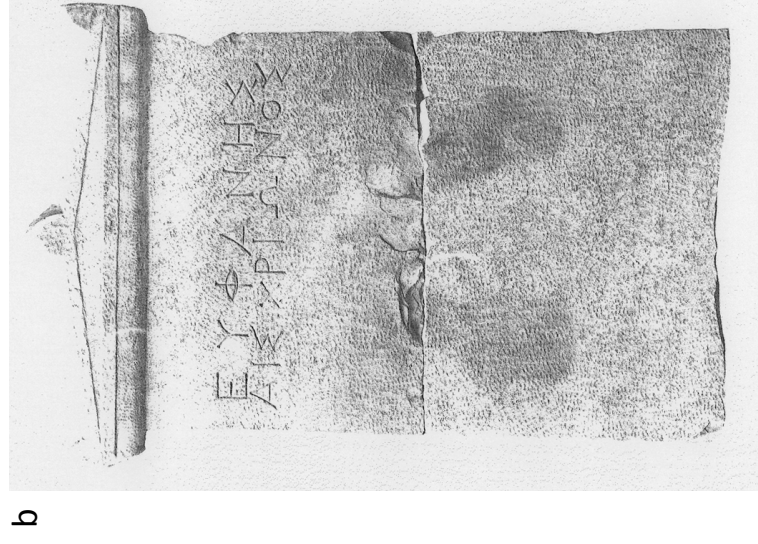 ΕΥΦΑΝΗΣ
ΑΙΣΧΡΙΩΝΟΣ
b